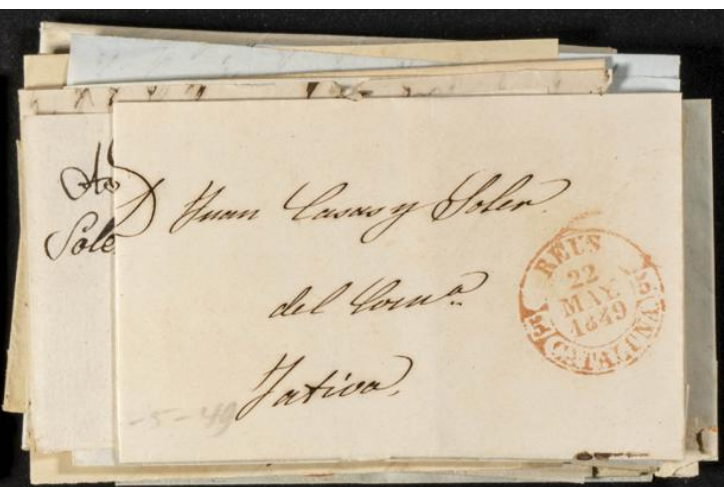 D Juan Casas y Soler.
del Com.º
Jativa.
Sole
REUS
22
MAY.
1849
CATALUÑA
-5-49